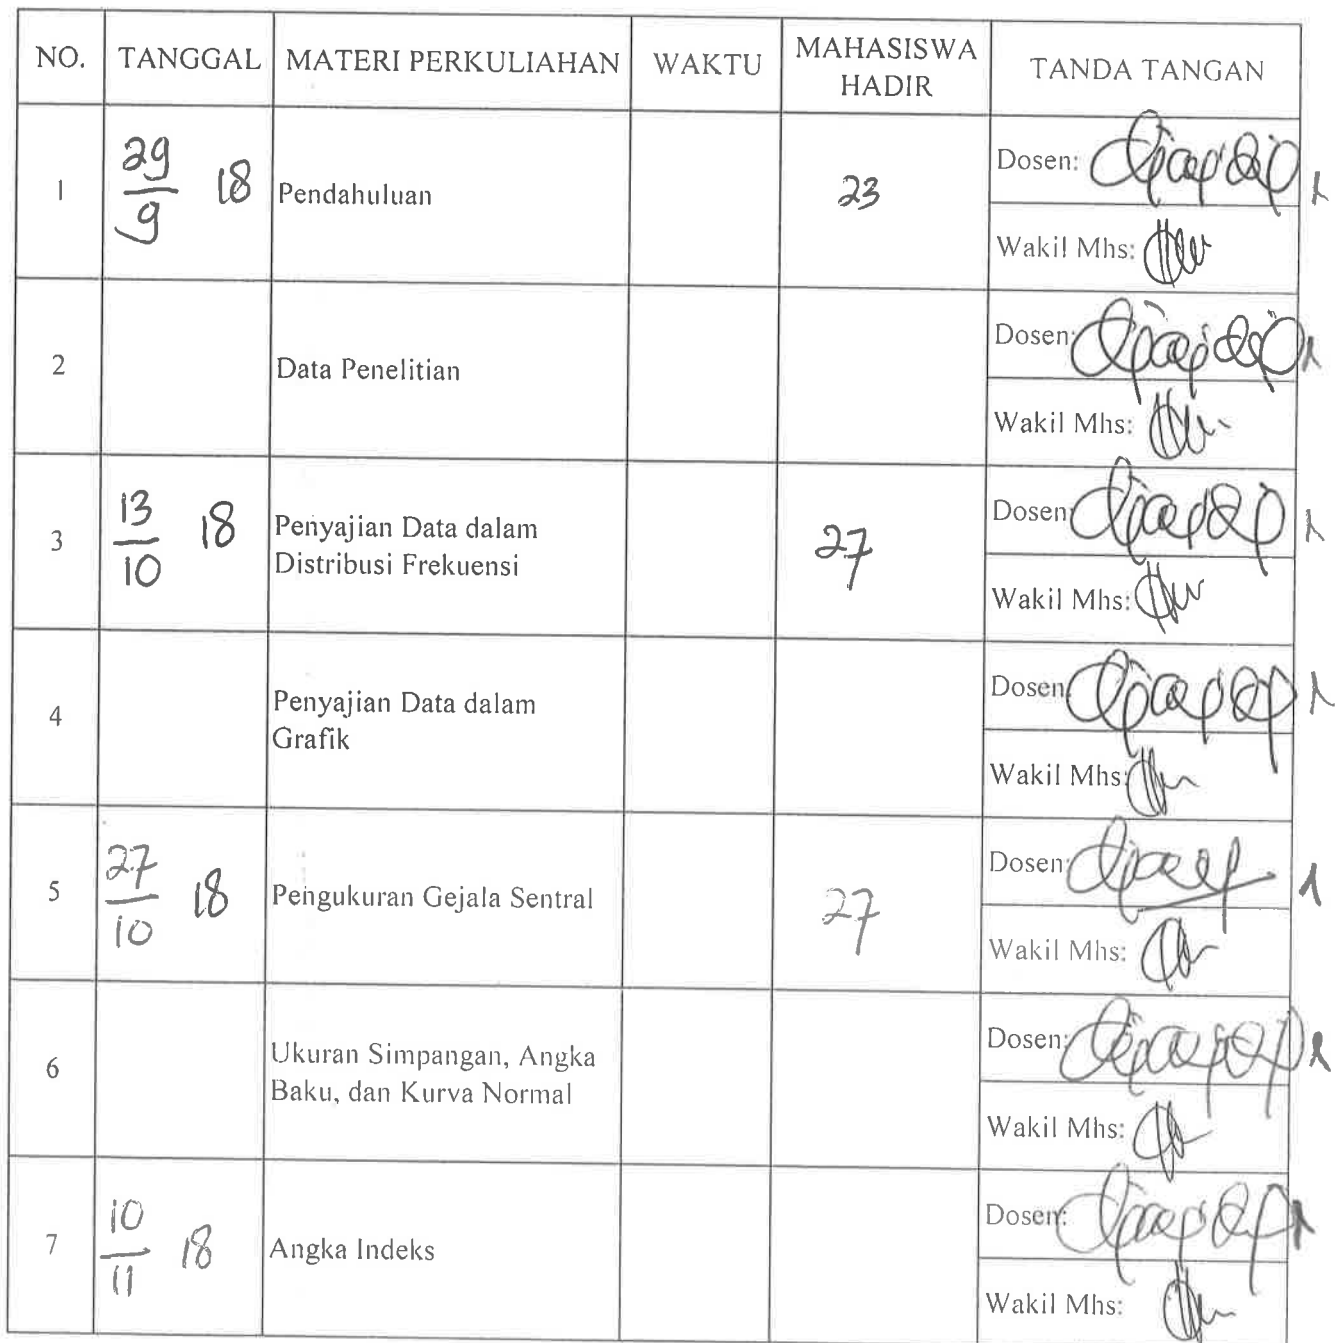 NO. TANGGAL MATERI PERKULIAHAN WAKTU MAHASISWA HADIR TANDA TANGAN
1 29/9 18 Pendahuluan 23 Dosen:
Wakil Mhs:
2 Data Penelitian Dosen:
Wakil Mhs:
3 13/10 18 Penyajian Data dalam Distribusi Frekuensi 27 Dosen:
Wakil Mhs:
4 Penyajian Data dalam Grafik Dosen:
Wakil Mhs:
5 27/10 18 Pengukuran Gejala Sentral 27 Dosen:
Wakil Mhs:
6 Ukuran Simpangan, Angka Baku, dan Kurva Normal Dosen:
Wakil Mhs:
7 10/11 18 Angka Indeks Dosen:
Wakil Mhs: